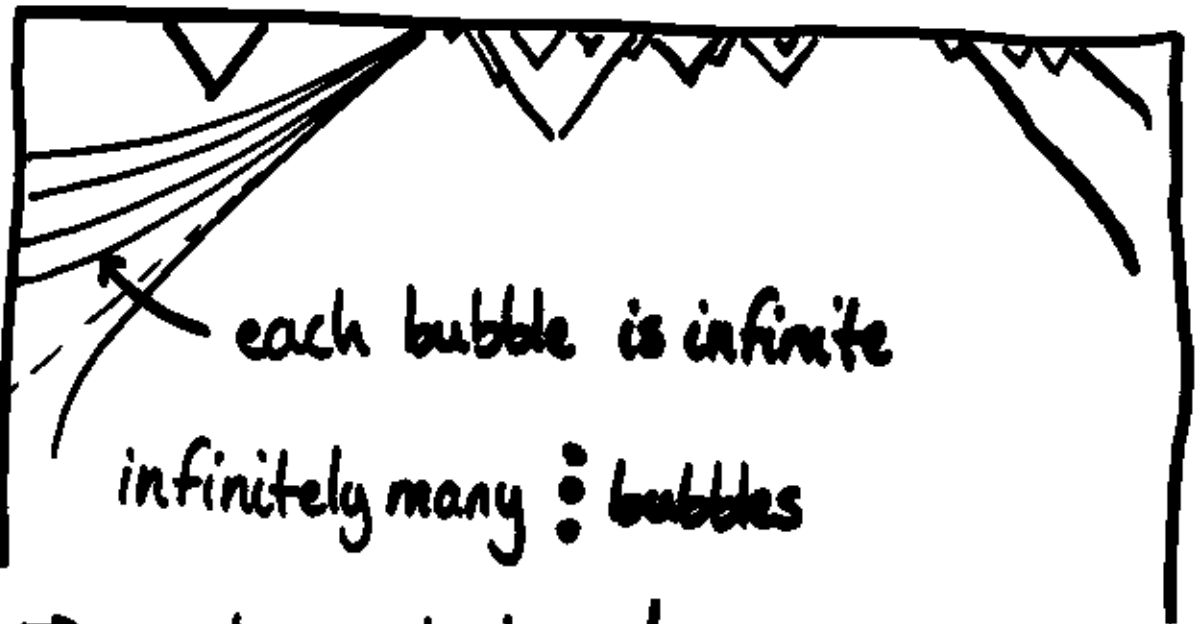 each bubble is infinite
infinitely many : bubbles